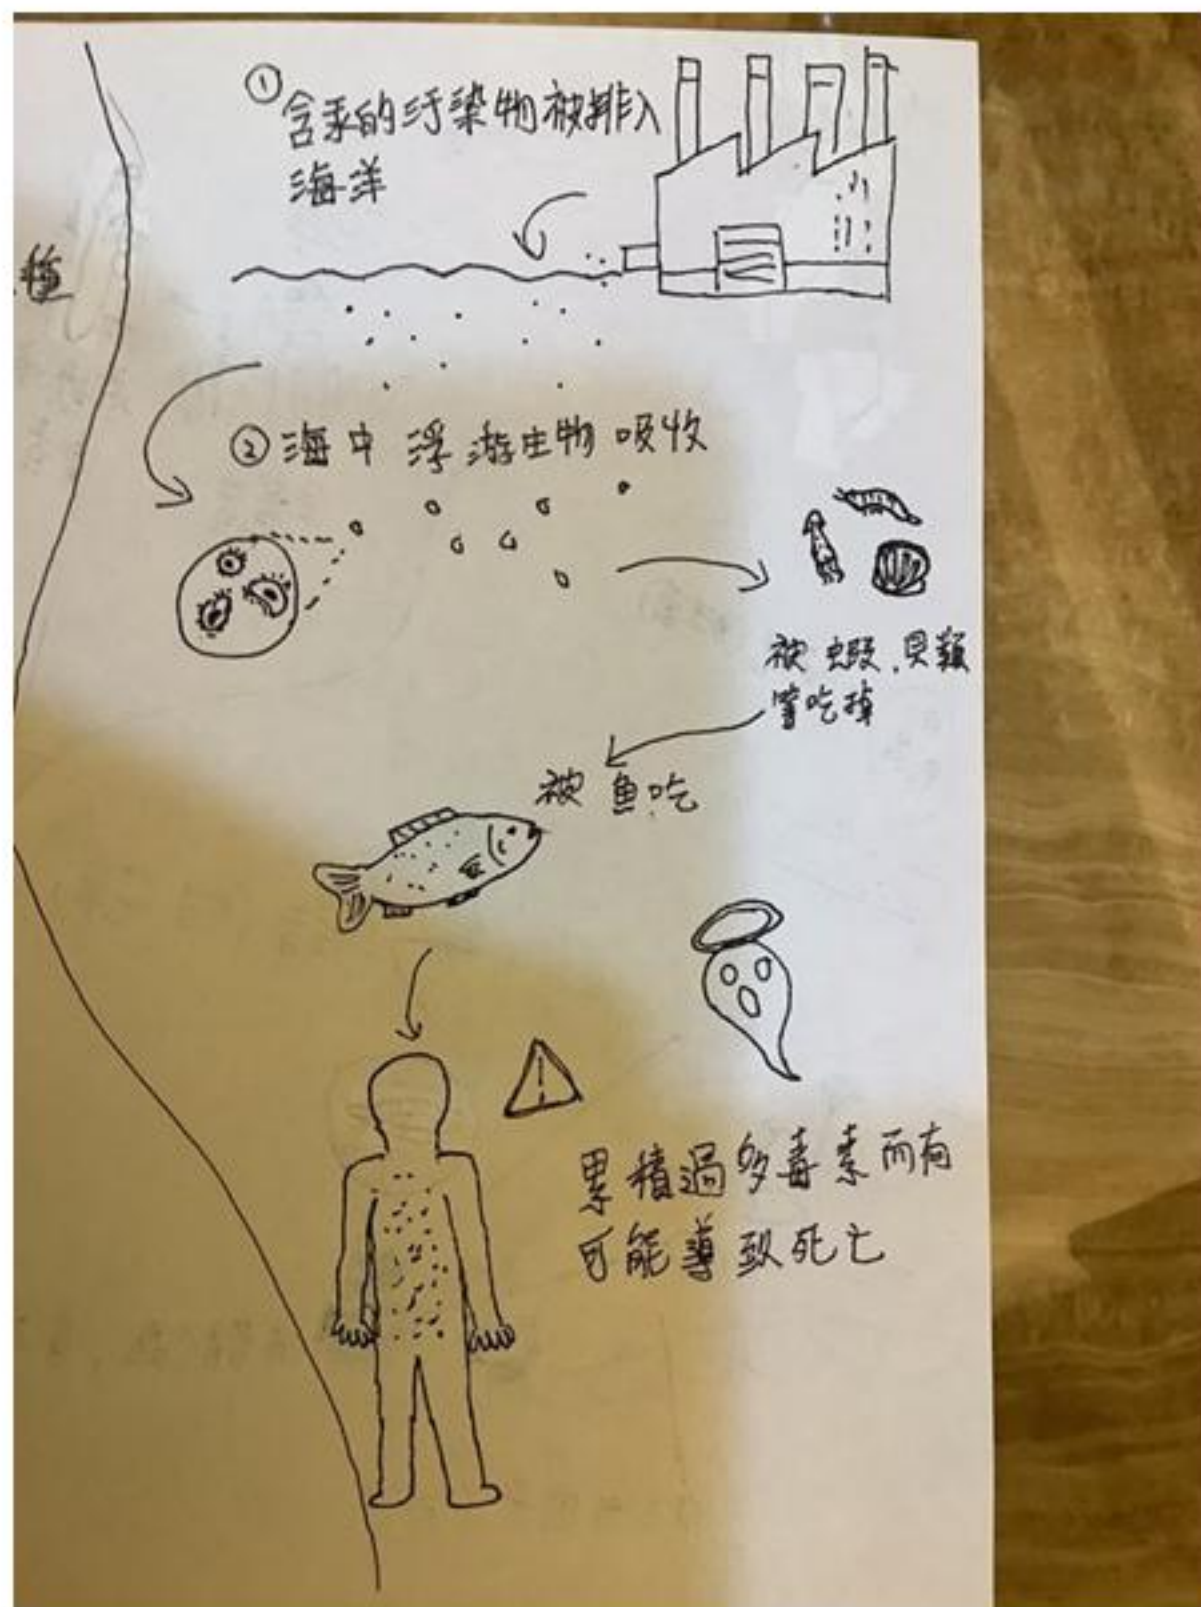 ① 含汞的污染物被排入
海洋
② 海中浮游生物吸收
被蝦、貝類
等吃掉
被魚吃
累積過多毒素而有
可能導致死亡